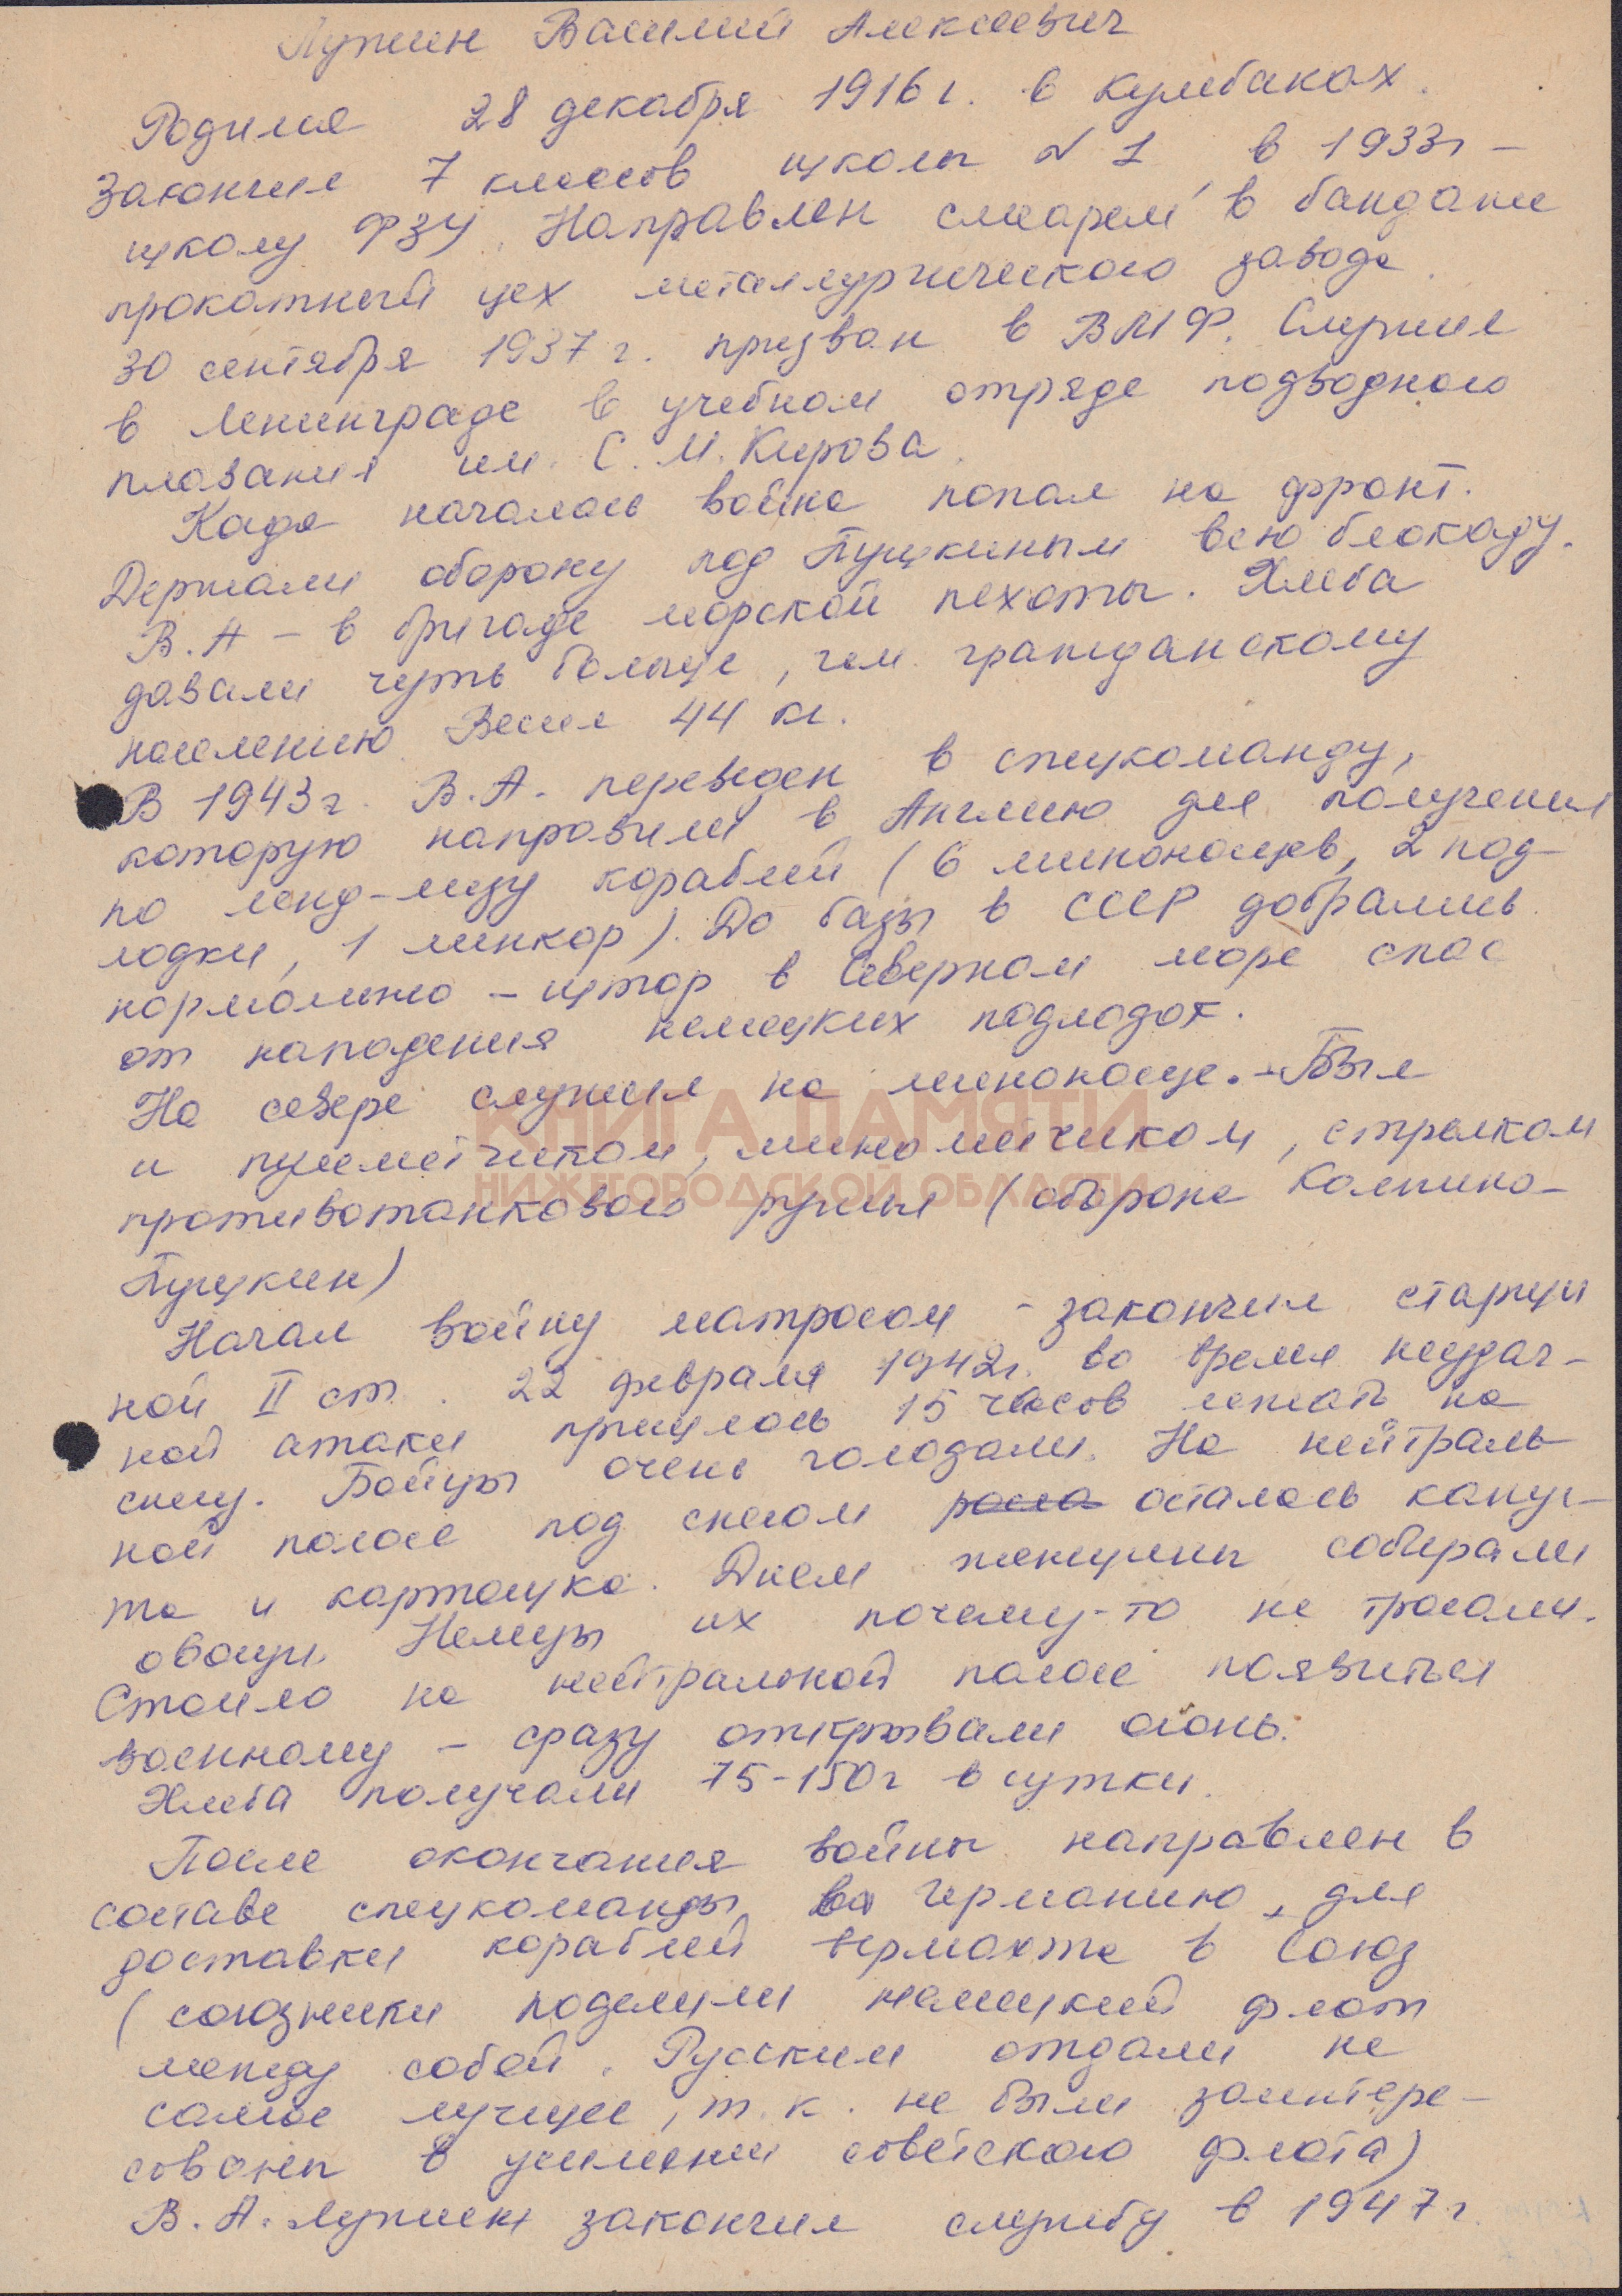 Лужин Василий Алексеевич
Родился 28 декабря 1916 г. в Кулебаках.
Закончил 7 классов школы N 1, в 1933 г –
школу ФЗУ. Направлен слесарем в бандаже
прокатный цех металлургического завода.
30 сентября 1937 г. призван в ВМФ. Служил
в Ленинграде в учебном отряде подводного
плавания им. С. М. Кирова.
Когда началась война попал на фронт.
Держали оборону под Пушкиным всю блокаду.
В. А – в бригаде морской пехоты. Хлеба
давали чуть больше, чем гражданскому
населению. Весил 44 кг.
В 1943 г. В. А. переведен в спецкоманду,
которую направили в Англию для получения
по ленд-лизу кораблей (6 миноносцев, 2 под-
лодки, 1 линкор). До базы в СССР добрались
нормально – шторм в Северном море спас
от нападения немецких подлодок.
На севере служил на миноносце. – Был
и пулеметчиком, минометчиком, стрелком
противотанкового ружья (оборона Колпино-
Пушкин)
Начал войну матросом – закончил старши
ной II ст. 22 февраля 1942 г. во время неудач-
ной атаки пришлось 15 часов лежать на
снегу. Бойцы очень голодали. На нейтраль
ной полосе под снегом росла осталась капус-
та и картошка. Днем женщины собирали
овощи. Немцы их почему-то не трогали.
Стоило на нейтральной полосе появиться
военному – сразу открывали огонь.
Хлеба получали 75-150 г в сутки.
После окончания войны направлен в
составе спецкоманды в Германию, для
доставки кораблей вермахта в Союз
(союзники поделили немецкий флот
между собой. Русским отдали не
самое лучшее, т. к. не были заинтере-
сованы в усилении советского флота)
В. А. Лужин закончил службу в 1947 г.
КНИГА ПАМЯТИ
НИЖЕГОРОДСКОЙ ОБЛАСТИ